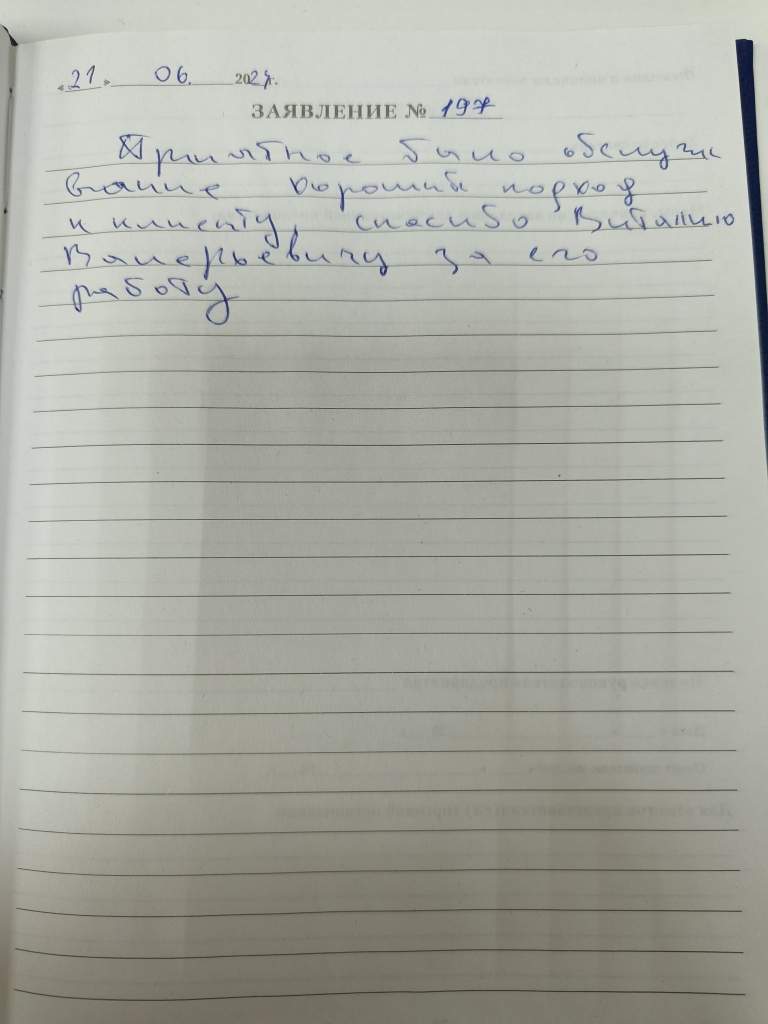 «21» 06. 2024г.
ЗАЯВЛЕНИЕ № 197
Приятное было обслужи
вание хороший подход
к клиенту, спасибо Виталию
Валерьевичу за его
работу